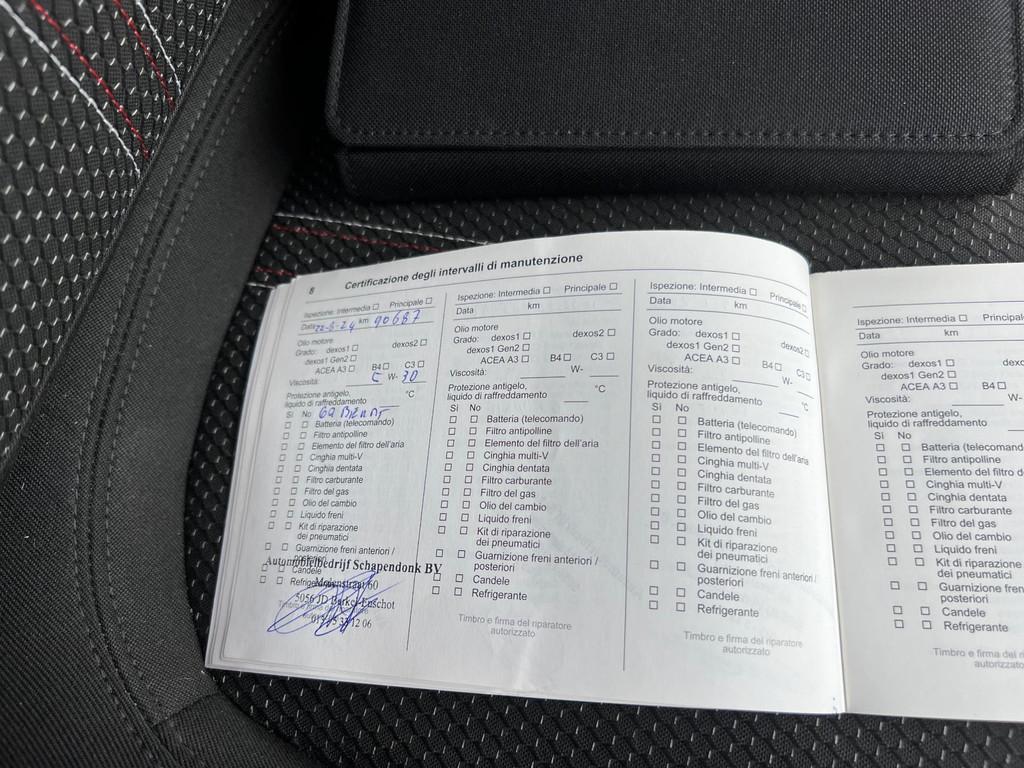 8 Certificazione degli intervalli di manutenzione
Ispezione: Intermedia ☐ Principale ☐
Data 22-5-24 km 90687
Olio motore
Grado: dexos1 ☐ dexos2 ☐
dexos1 Gen2 ☐
ACEA A3 ☐ B4 ☐ C3 ☐
Viscosità: C W- 30
Protezione antigelo,
liquido di raffreddamento °C
Sì No
☐ ☐ Batteria (telecomando)
☐ ☐ Filtro antipolline
☐ ☐ Elemento del filtro dell'aria
☐ ☐ Cinghia multi-V
☐ ☐ Cinghia dentata
☐ ☐ Filtro carburante
☐ ☐ Filtro del gas
☐ ☐ Olio del cambio
☐ ☐ Liquido freni
☐ ☐ Kit di riparazione
dei pneumatici
☐ ☐ Guarnizione freni anteriori /
posteriori
☐ ☐ Candele
☐ ☐ Refrigerante
Automobielbedrijf Schapendonk BV
Molenstraat 60
5056 JD Berkel-Enschot
Ispezione: Intermedia ☐ Principale ☐
Data km
Olio motore
Grado: dexos1 ☐ dexos2 ☐
dexos1 Gen2 ☐
ACEA A3 ☐ B4 ☐ C3 ☐
Viscosità: W-
Protezione antigelo,
liquido di raffreddamento °C
Sì No
☐ ☐ Batteria (telecomando)
☐ ☐ Filtro antipolline
☐ ☐ Elemento del filtro dell'aria
☐ ☐ Cinghia multi-V
☐ ☐ Cinghia dentata
☐ ☐ Filtro carburante
☐ ☐ Filtro del gas
☐ ☐ Olio del cambio
☐ ☐ Liquido freni
☐ ☐ Kit di riparazione
dei pneumatici
☐ ☐ Guarnizione freni anteriori /
posteriori
☐ ☐ Candele
☐ ☐ Refrigerante
Timbro e firma del riparatore
autorizzato
Ispezione: Intermedia ☐ Principale ☐
Data km
Olio motore
Grado: dexos1 ☐ dexos2 ☐
dexos1 Gen2 ☐
ACEA A3 ☐ B4 ☐ C3 ☐
Viscosità: W-
Protezione antigelo,
liquido di raffreddamento °C
Sì No
☐ ☐ Batteria (telecomando)
☐ ☐ Filtro antipolline
☐ ☐ Elemento del filtro dell'aria
☐ ☐ Cinghia multi-V
☐ ☐ Cinghia dentata
☐ ☐ Filtro carburante
☐ ☐ Filtro del gas
☐ ☐ Olio del cambio
☐ ☐ Liquido freni
☐ ☐ Kit di riparazione
dei pneumatici
☐ ☐ Guarnizione freni anteriori /
posteriori
☐ ☐ Candele
☐ ☐ Refrigerante
Timbro e firma del riparatore
autorizzato
Ispezione: Intermedia ☐ Principal
Data km
Olio motore
Grado: dexos1 ☐ dexo
dexos1 Gen2 ☐
ACEA A3 ☐ B4 ☐
Viscosità: W-
Protezione antigelo,
liquido di raffreddamento
Sì No
☐ ☐ Batteria (telecomand
☐ ☐ Filtro antipolline
☐ ☐ Elemento del filtro d
☐ ☐ Cinghia multi-V
☐ ☐ Cinghia dentata
☐ ☐ Filtro carburante
☐ ☐ Filtro del gas
☐ ☐ Olio del cambio
☐ ☐ Liquido freni
☐ ☐ Kit di riparazione
dei pneumatici
☐ ☐ Guarnizione fren
posteriori
☐ ☐ Candele
☐ ☐ Refrigerante
Timbro e firma del ri
autorizzato